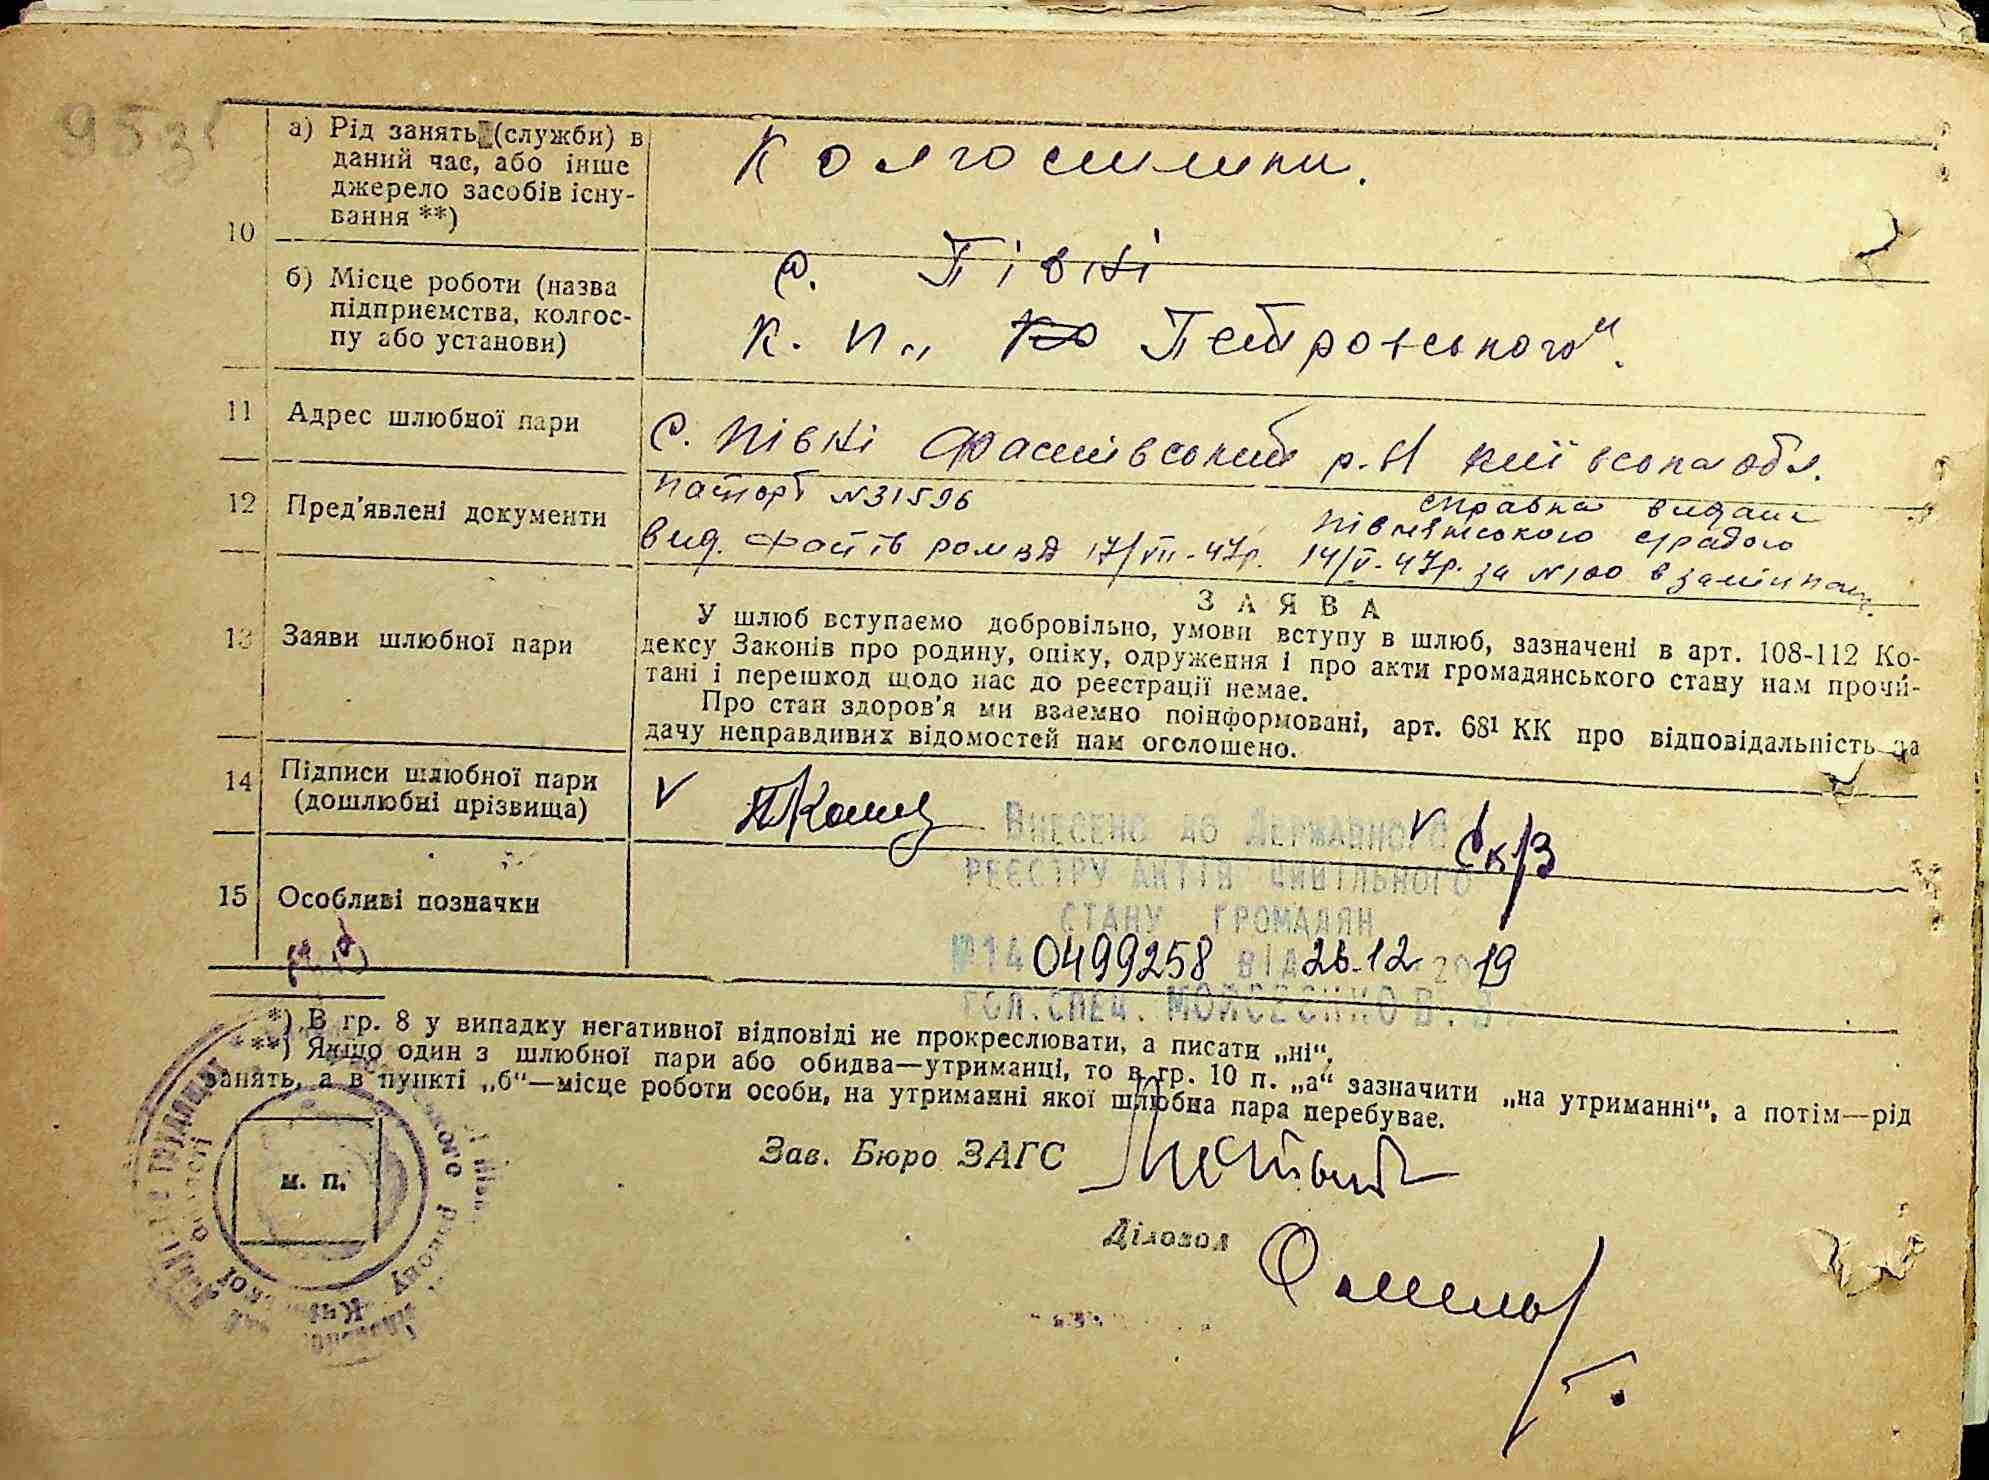 95зв
10
а) Рід занять (служби) в
даний час, або інше
джерело засобів існу-
вання **)
Колгоспники.
б) Місце роботи (назва
підприємства, колгос-
пу або установи)
с. Півні
к. п. „Петровського“.
11 Адрес шлюбної пари
С. Півні Фастівський р-н Київська обл.
12 Пред'явлені документи
паспорт №31596
вид. Фаст 17/VII-47р.
справка видана
Півнянською с/радою
14/V-47р. за №100 в замін пасп.
13 Заяви шлюбної пари
ЗАЯВА
У шлюб вступаємо добровільно, умови вступу в шлюб, зазначені в арт. 108-112 Ко-
дексу Законів про родину, опіку, одруження і про акти громадянського стану нам прочи-
тані і перешкод щодо нас до реєстрації немає.
Про стан здоров'я ми взаємно поінформовані, арт. 68¹ КК про відповідальність за
дачу неправдивих відомостей нам оголошено.
14 Підписи шлюбної пари
(дошлюбні прізвища)
V
V
Внесено до Державного
реєстру актів цивільного
стану громадян
№14 0499258 від 26.12 2019
гол.спец. Мойсеєнко В.В.
15 Особливі позначки
*) В гр. 8 у випадку негативної відповіді не прокреслювати, а писати „ні“.
**) Якщо один з шлюбної пари або обидва—утриманці, то в гр. 10 п. „а“ зазначити „на утриманні“, а потім—рід
занять, а в пункті „б“—місце роботи особи, на утриманні якої шлюбна пара перебуває.
м. п.
Зав. Бюро ЗАГС
Діловод